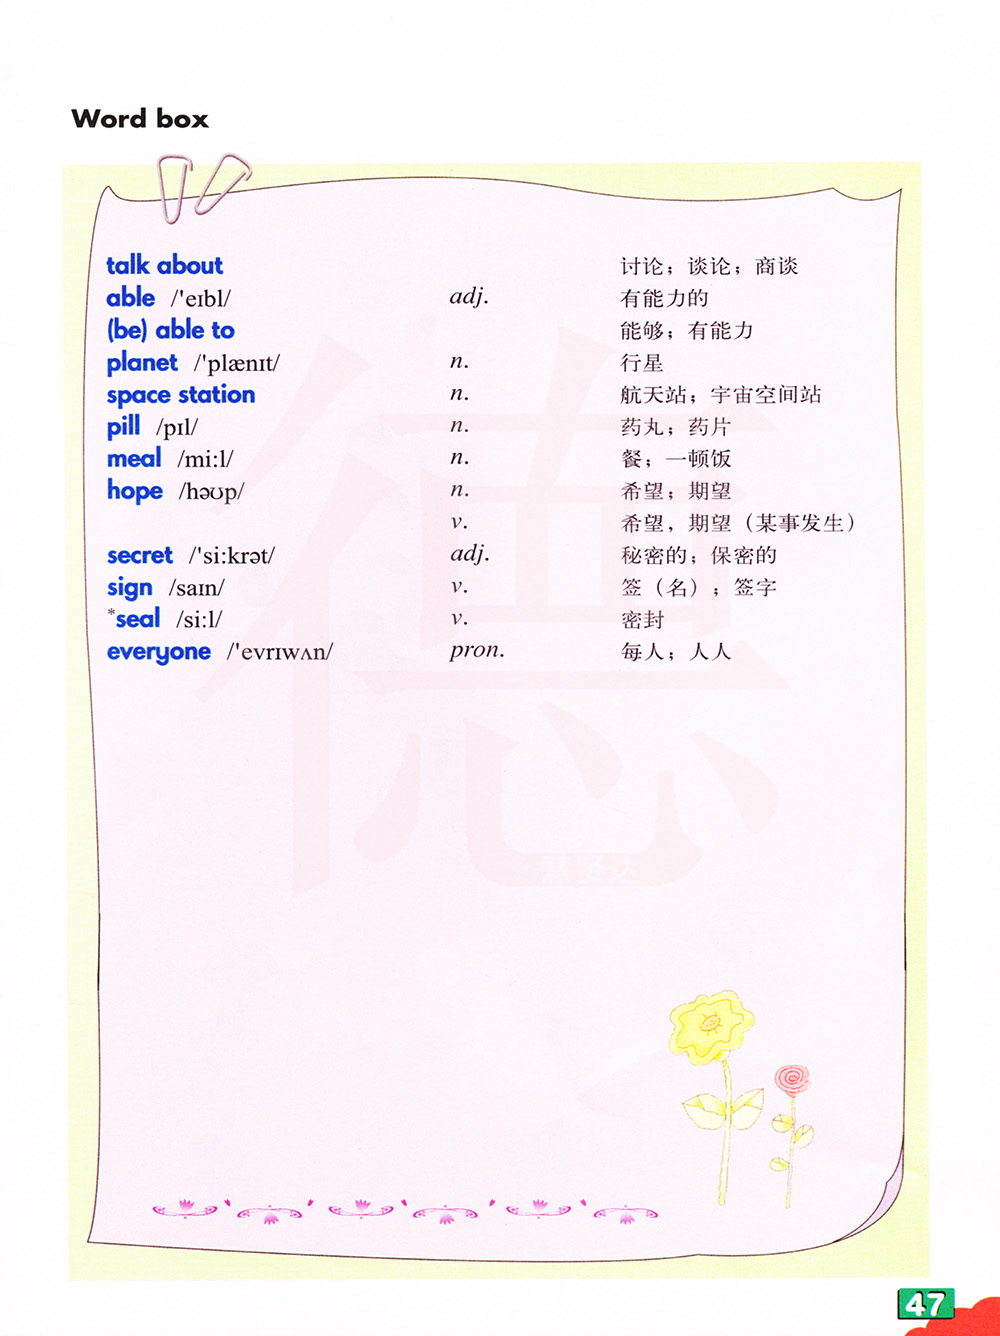 Word box
talk about 讨论；谈论；商谈
able /'eɪbl/ adj. 有能力的
(be) able to 能够；有能力
planet /'plænɪt/ n. 行星
space station n. 航天站；宇宙空间站
pill /pɪl/ n. 药丸；药片
meal /mi:l/ n. 餐；一顿饭
hope /həʊp/ n. 希望；期望
v. 希望，期望（某事发生）
secret /'si:krət/ adj. 秘密的；保密的
sign /saɪn/ v. 签（名）；签字
*seal /si:l/ v. 密封
everyone /'evrɪwʌn/ pron. 每人；人人
德
47